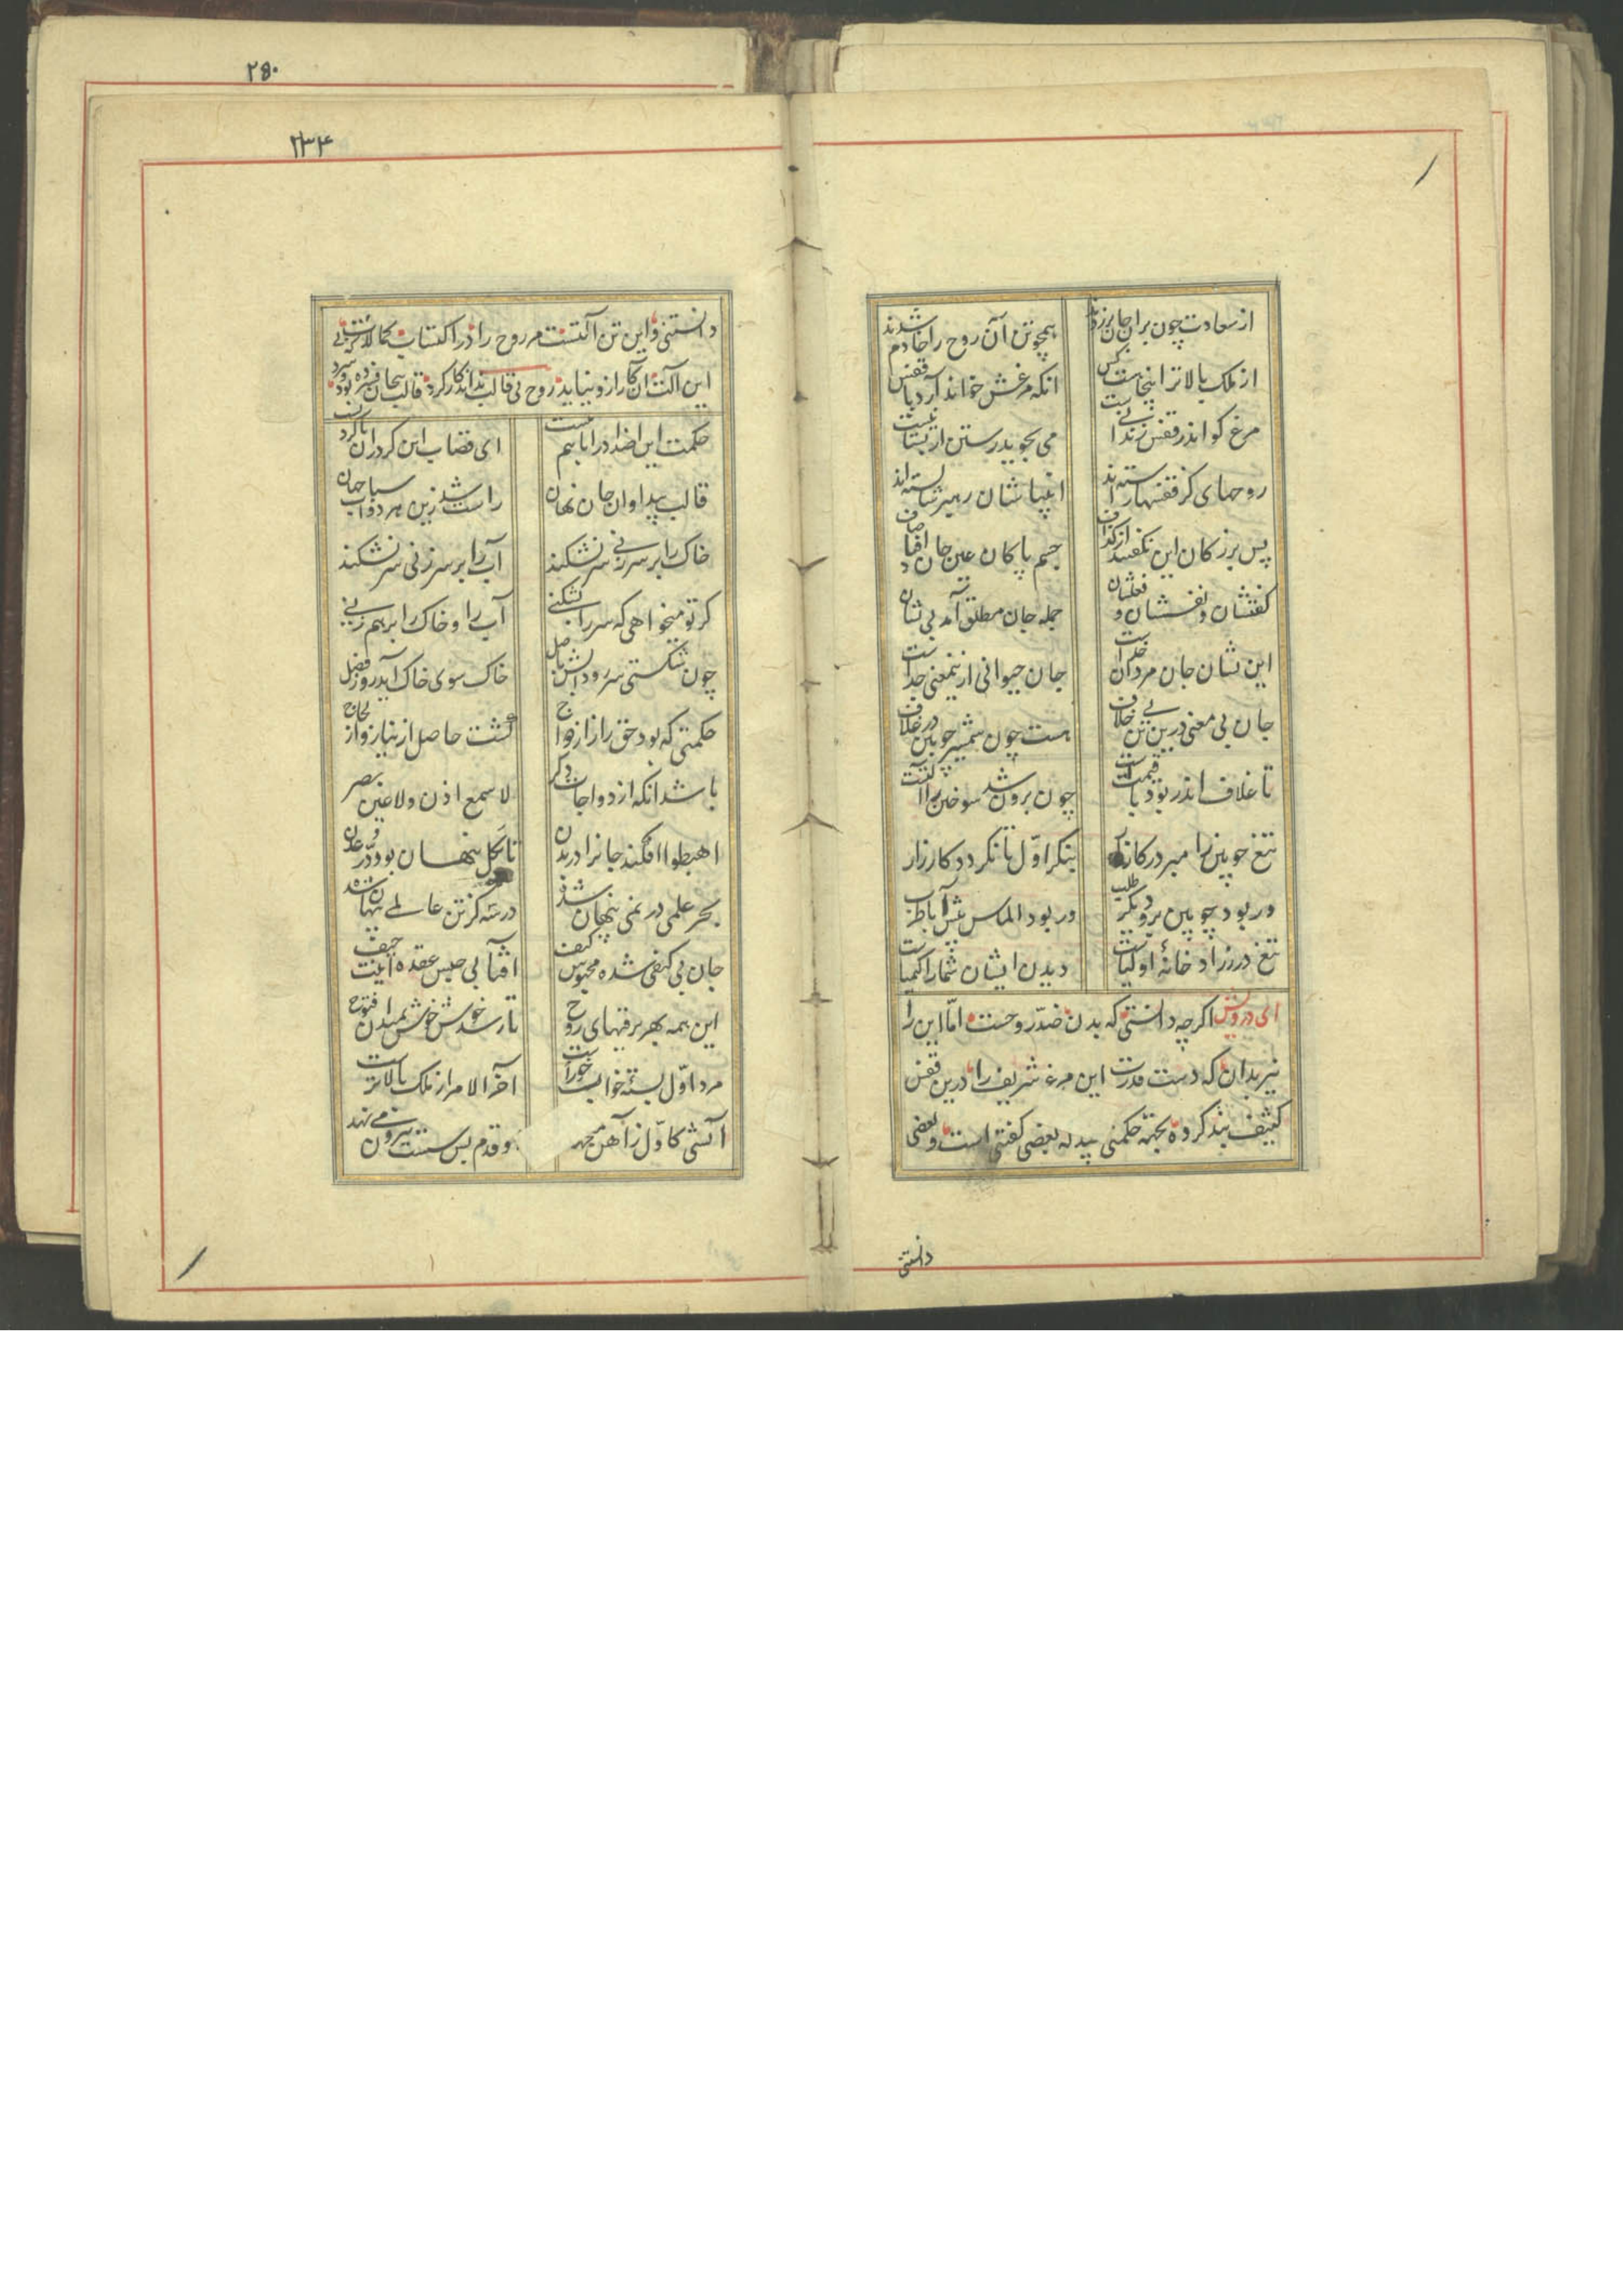 از سعادت چون بران جان برزدند همچو تن آن روح را خادم شدند
از ملک بالاتر اینجا نیست کس انکه مرغش خواند آرد با قفس
مرغ کو اندر قفس زندانیست می نجوید رستن از نادانیست
روحهای کز قفسها رسته‌اند انبیاشان رهبر شایسته‌اند
پس بزرکان این نکفتند از کذاف جسم پاکان عین جان افتاد صاف
کفتشان و نفسشان و فعلشان جمله جان مطلق آمد بی نشان
این نشان جان مردان خداست جان حیوانی ازینمعنی جداست
جان بی معنی درین تن بی خلاف هست چون شمشیر چوبین در غلاف
تا غلاف اندر بود با قیمتست چون برون شد سوختن را آلتست
تیغ چوبین را مبر در کارزار بنکر اوّل تا نکردد کار زار
ور بود چوبین برو دیکر طلب ور بود الماس پیش آ با طرب
تیغ در زرّاد خانهٔ اولیاست دیدن ایشان شما را کیمیاست
ای درویش اکرچه دانستی که بدن ضدّ روحست امّا این را
نیز بدان که دست قدرت این مرغ شریف را درین قفس
کثیف بند کرده بجهته حکمتی بعضی کفتنی است و بعضی
دانستنی
۲۵۰
۲۳۴
دانستنی و این تن آلتست مر روح را در اکتساب کمالات که بی
این آلت آن کار ازو نیاید روح بی قالب نداند کار کرد قالب بیجان فسرده بود و سرد
حکمت این اضداد را با هم ببست ای قصاب این کردران با کردنست
قالب پیدا و ان جان نهان راست شد زین هر دو اسباب جهان
خاک را بر سر زنی سر نشکند آب را بر سر زنی سر نشکند
کر تو میخواهی که سر را بشکنی آب را و خاک را بر هم زنی
چون شکستی سر رود آبش باصل خاک سوی خاک آید روز فصل
حکمتی که بود حق را ز ازدواج کشت حاصل از نیاز و از لجاج
باشد انکه ازدواجات دکر لا سمع اذن و لا عین بصر
اهبطوا افکند جانرا در بدن تا بکل پنهان بود درّ عدن
بحر علمی در نمی پنهان شده در سه کز تن عالمی پنهان شده
جان بی کیفی شده محبوس کیف افتابی حبس عقده اینت حیف
این همه بهر ترقیهای روح تا رسد خوش خوش بمیدان فتوح
مرد اوّل بسته خواب و خورست آخر الامر از ملک بالاترست
آتشی کاوّل ز آهن می‌جهد و قدم بس سست بیرون می نهد